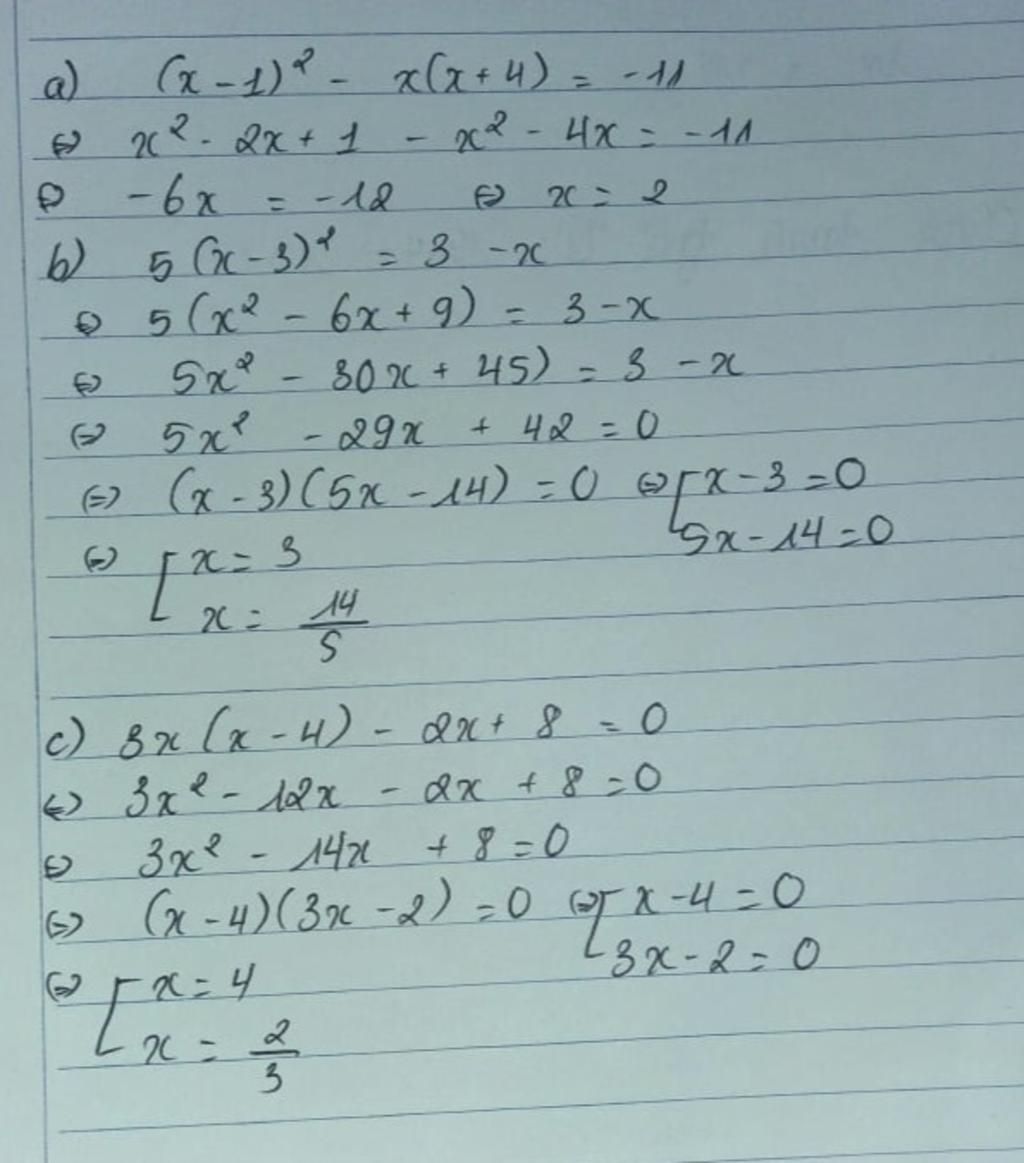 a) (x - 1)² - x(x + 4) = -11
⇔ x² - 2x + 1 - x² - 4x = -11
⇔ -6x = -12 ⇔ x = 2
b) 5(x - 3)² = 3 - x
⇔ 5(x² - 6x + 9) = 3 - x
⇔ 5x² - 30x + 45) = 3 - x
⇔ 5x² - 29x + 42 = 0
⇔ (x - 3)(5x - 14) = 0 ⇔ [x - 3 = 0
5x - 14 = 0
⇔ [x = 3
x = 14/5
c) 3x(x - 4) - 2x + 8 = 0
⇔ 3x² - 12x - 2x + 8 = 0
⇔ 3x² - 14x + 8 = 0
⇔ (x - 4)(3x - 2) = 0 ⇔ [x - 4 = 0
3x - 2 = 0
⇔ [x = 4
x = 2/3